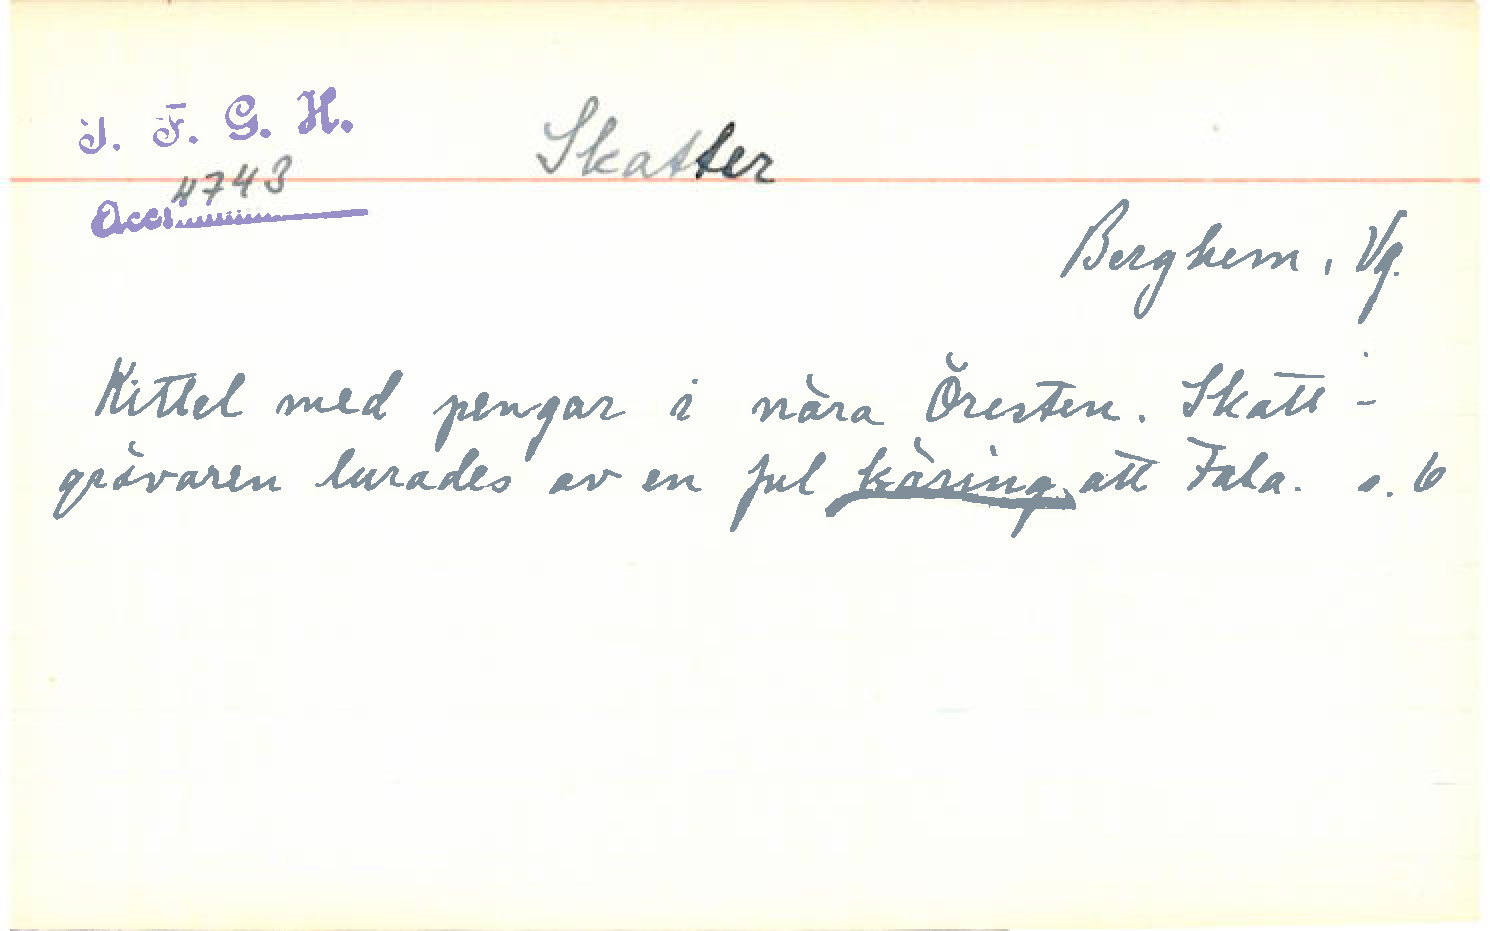 I. F. G. H.
Skatter
Acc. 4743
Berghem, Vg.
Kittel med pengar i nära Öresten. Skatt-
grävaren lurades av en ful käring att tala. s. 6